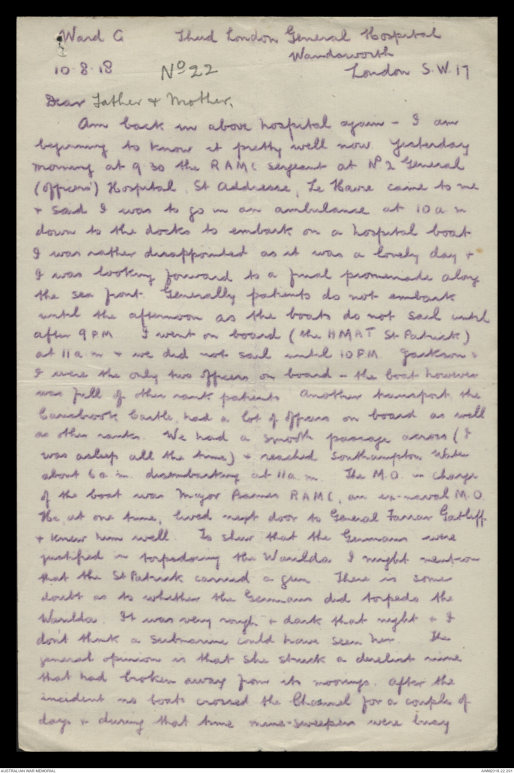 Ward G Third London General Hospital
Wandsworth
10.8.18 Nº 22 London S.W.17
Dear Father & Mother,
Am back in above hospital again - I am
beginning to know it pretty well now. Yesterday
morning at 9 30 the RAMC sergeant at Nº 2 General
(Officers') Hospital, St Addresse, Le Havre came to me
& said I was to go in an ambulance at 10 a m
down to the docks to embark on a hospital boat
I was rather disappointed as it was a lovely day &
I was looking forward to a final promenade along
the sea front. Generally patients do not embark
until the afternoon as the boats do not sail until
after 9 PM I went on board (the HMAT St Patrick)
at 11 a. m & we did not sail until 10 PM. Jackson &
I were the only two Officers on board - the boat however
was full of other rank patients Another transport the
Carisbrook Castle, had a lot of Officers on board as well
as other ranks. We had a smooth passage across (I
was asleep all the time) & reached Southampton Water
about 6 a m. disembarking at 11 a. m. The M.O. in charge
of the boat was Major Barnes RAMC, an ex-naval M.O
He, at one time, lived next door to General Farrar Gatliff
& knew him well. To shew that the Germans were
justified in torpedoing the Warilda I might mention
that the St Patrick carried a gun. There is some
doubt as to whether the Germans did torpedo the
Warilda. It was very rough & dark that night & I
don't think a submarine could have seen her. The
general opinion is that she struck a derelict mine
that had broken away from its moorings. After the
incident no boats crossed the Channel for a couples of
days & during that time mine-sweepers were busy
AUSTRALIAN WAR MEMORIAL